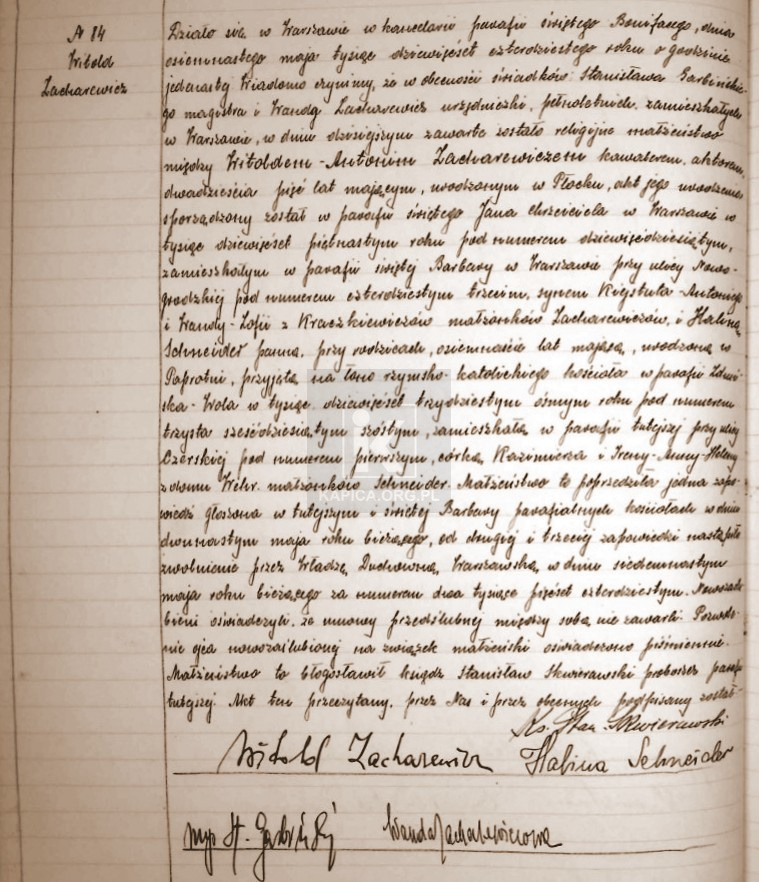 № 84
Witold
Zacharewicz
Działo się w Warszawie w kancelarii parafii świętego Bonifacego, dnia
osiemnastego maja tysiąc dziewięćset czterdziestego roku o godzinie
jedenastej Wiadomo czynimy, że w obecności świadków: Stanisława Garbińskie-
go magistra i Wandy Zacharewicz urzędniczki, pełnoletnich, zamieszkałych
w Warszawie, w dniu dzisiejszym zawarte zostało religijne małżeństwo
między Witoldem-Antonim Zacharewiczem kawalerem, aktorem,
dwadzieścia pięć lat mającym, urodzonym w Płocku, akt jego urodzenia
sporządzony został w parafii świętego Jana Chrzciciela w Warszawie w
tysiąc dziewięćset piętnastym roku pod numerem dziewięćdziesiątym,
zamieszkałym w parafii świętej Barbary w Warszawie przy ulicy Nowo-
grodzkiej pod numerem czterdziestym trzecim, synem Kiejstuta-Antoniego
i Wandy-Zofii z Kraczkiewiczów małżonków Zacharewiczów, i Haliną
Schneider panną, przy rodzicach, osiemnaście lat mającą, urodzoną w
Paprotni, przyjętą na łono rzymsko-katolickiego kościoła w parafii Zduń-
ska-Wola w tysiąc dziewięćset trzydziestym ósmym roku pod numerem
trzysta sześćdziesiątym szóstym, zamieszkałą w parafii tutejszej przy ulicy
Czerskiej pod numerem pierwszym, córką Kazimierza i Ireny-Anny-Heleny
z domu Wehr, małżonków Schneider. Małżeństwo to poprzedziła jedna zapo-
wiedź głoszona w tutejszym i świętej Barbary parafialnych kościołach w dniu
dwunastym maja roku bieżącego, od drugiej i trzeciej zapowiedzi nastąpiło
zwolnienie przez Władzę Duchowną Warszawską w dniu siedemnastym
maja roku bieżącego za numerem dwa tysiące pięćset czterdziestym. Nowozaślu-
bieni oświadczyli, że umowy przedślubnej między sobą nie zawarli. Pozwole-
nie ojca nowozaślubionej na związek małżeński oświadczono piśmiennie.
Małżeństwo to błogosławił ksiądz Stanisław Skwierawski proboszcz parafii
tutejszej. Akt ten przeczytany, przez Nas i przez obecnych podpisany został-
Ks. Stan. Skwierawski
Witold Zacharewicz Halina Schneider
mgr St. Garbiński Wanda Zacharewiczowa
KAPICA.ORG.PL